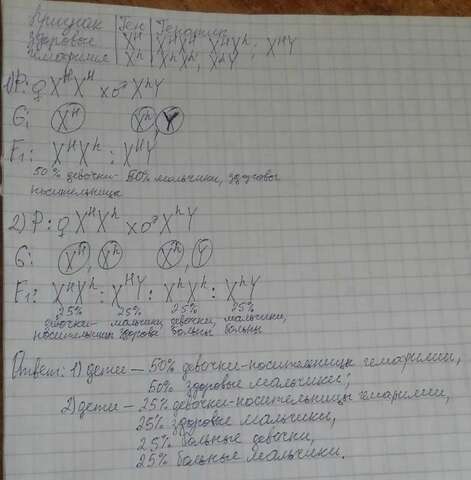 Признак | Ген | Генотип
Здоровье | Xᴴ | XᴴXᴴ, XᴴXʰ; XᴴY
гемофилия | Xʰ | XʰXʰ, XʰY
1) P: ♀ XᴴXᴴ x ♂ XʰY
G: Xᴴ Xʰ, Y
F₁: XᴴXʰ : XᴴY
50% девочки- 50% мальчики, здоровые
носительницы
2) P: ♀ XᴴXʰ x ♂ XʰY
G: Xᴴ, Xʰ Xʰ, Y
F₁: XᴴXʰ : XᴴY : XʰXʰ : XʰY
25% 25% 25% 25%
девочки- мальчики, девочки, мальчики,
носительницы здоровы больны больны
Ответ: 1) дети – 50% девочки-носительницы гемофилии,
50% здоровые мальчики;
2) дети – 25% девочки-носительницы гемофилии,
25% здоровые мальчики,
25% больные девочки,
25% больные мальчики.